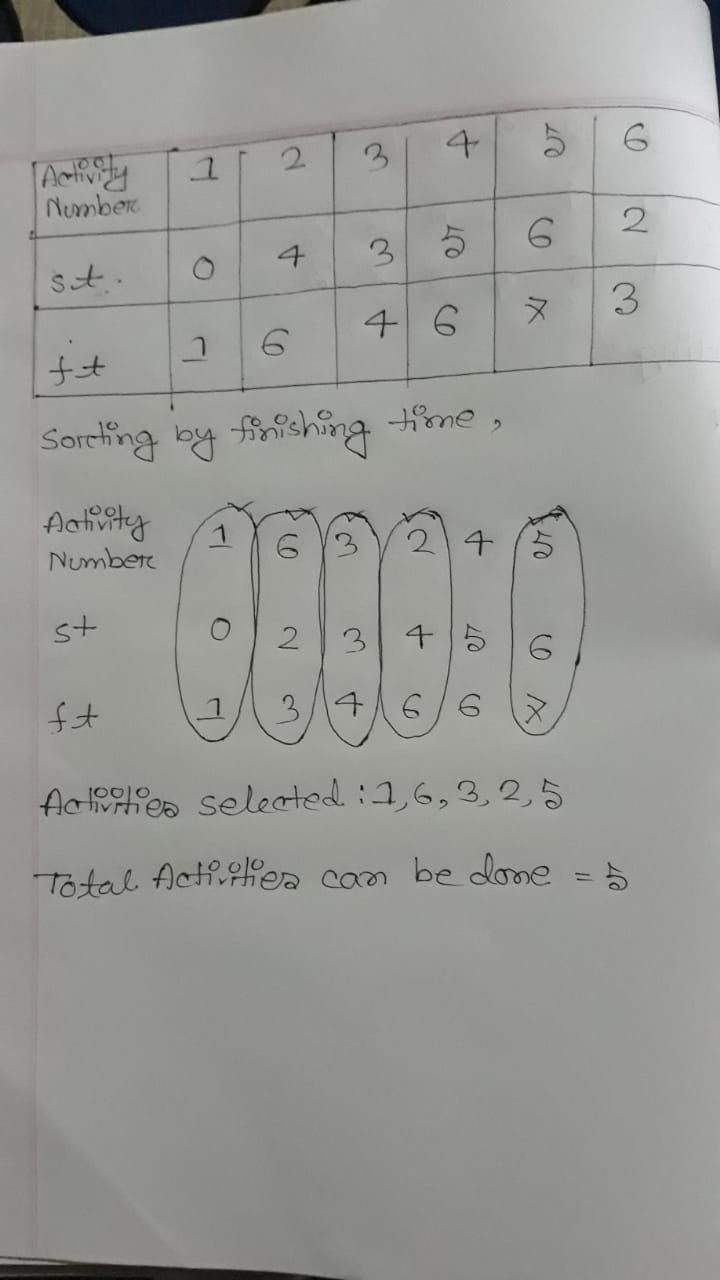 Activity Number 1 2 3 4 5 6
st. 0 4 3 5 6 2
ft 1 6 4 6 7 3
Sorting by finishing time,
Activity
Number 1 6 3 2 4 5
st 0 2 3 4 5 6
ft 1 3 4 6 6 7
Activities selected : 1, 6, 3, 2, 5
Total Activities can be done = 5